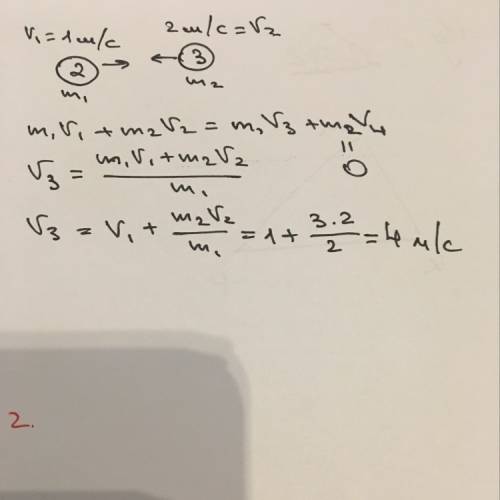 V₁ = 1 м/с 2 м/с = V₂
2 3
m₁ m₂
m₁V₁ + m₂V₂ = m₁V₃ + m₂V₄
= 0
V₃ = (m₁V₁ + m₂V₂) / m₁
V₃ = V₁ + m₂V₂ / m₁ = 1 + 3·2 / 2 = 4 м/с
2.